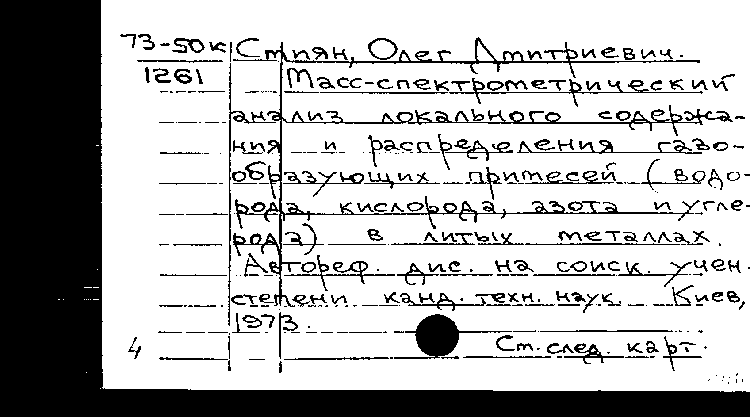 73-50к Стиян, Олег Дмитриевич.
1261 Масс-спектрометрический
анализ локального содержа-
ния и распределения газо-
образующих примесей (водо-
рода, кислорода, азота и угле-
рода) в литых металлах.
Автореф. дис. на соиск. учен.
степени канд. техн. наук. Киев,
1973.
4 См. след. карт.